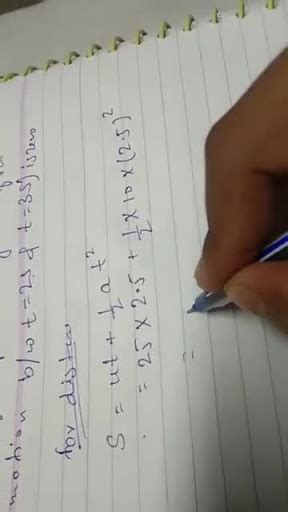 motion b/w t=2s & t=3s) is zero
for dista
S = ut + 1/2 a t²
= 25 × 2.5 + 1/2 × 10 × (2.5)²
=